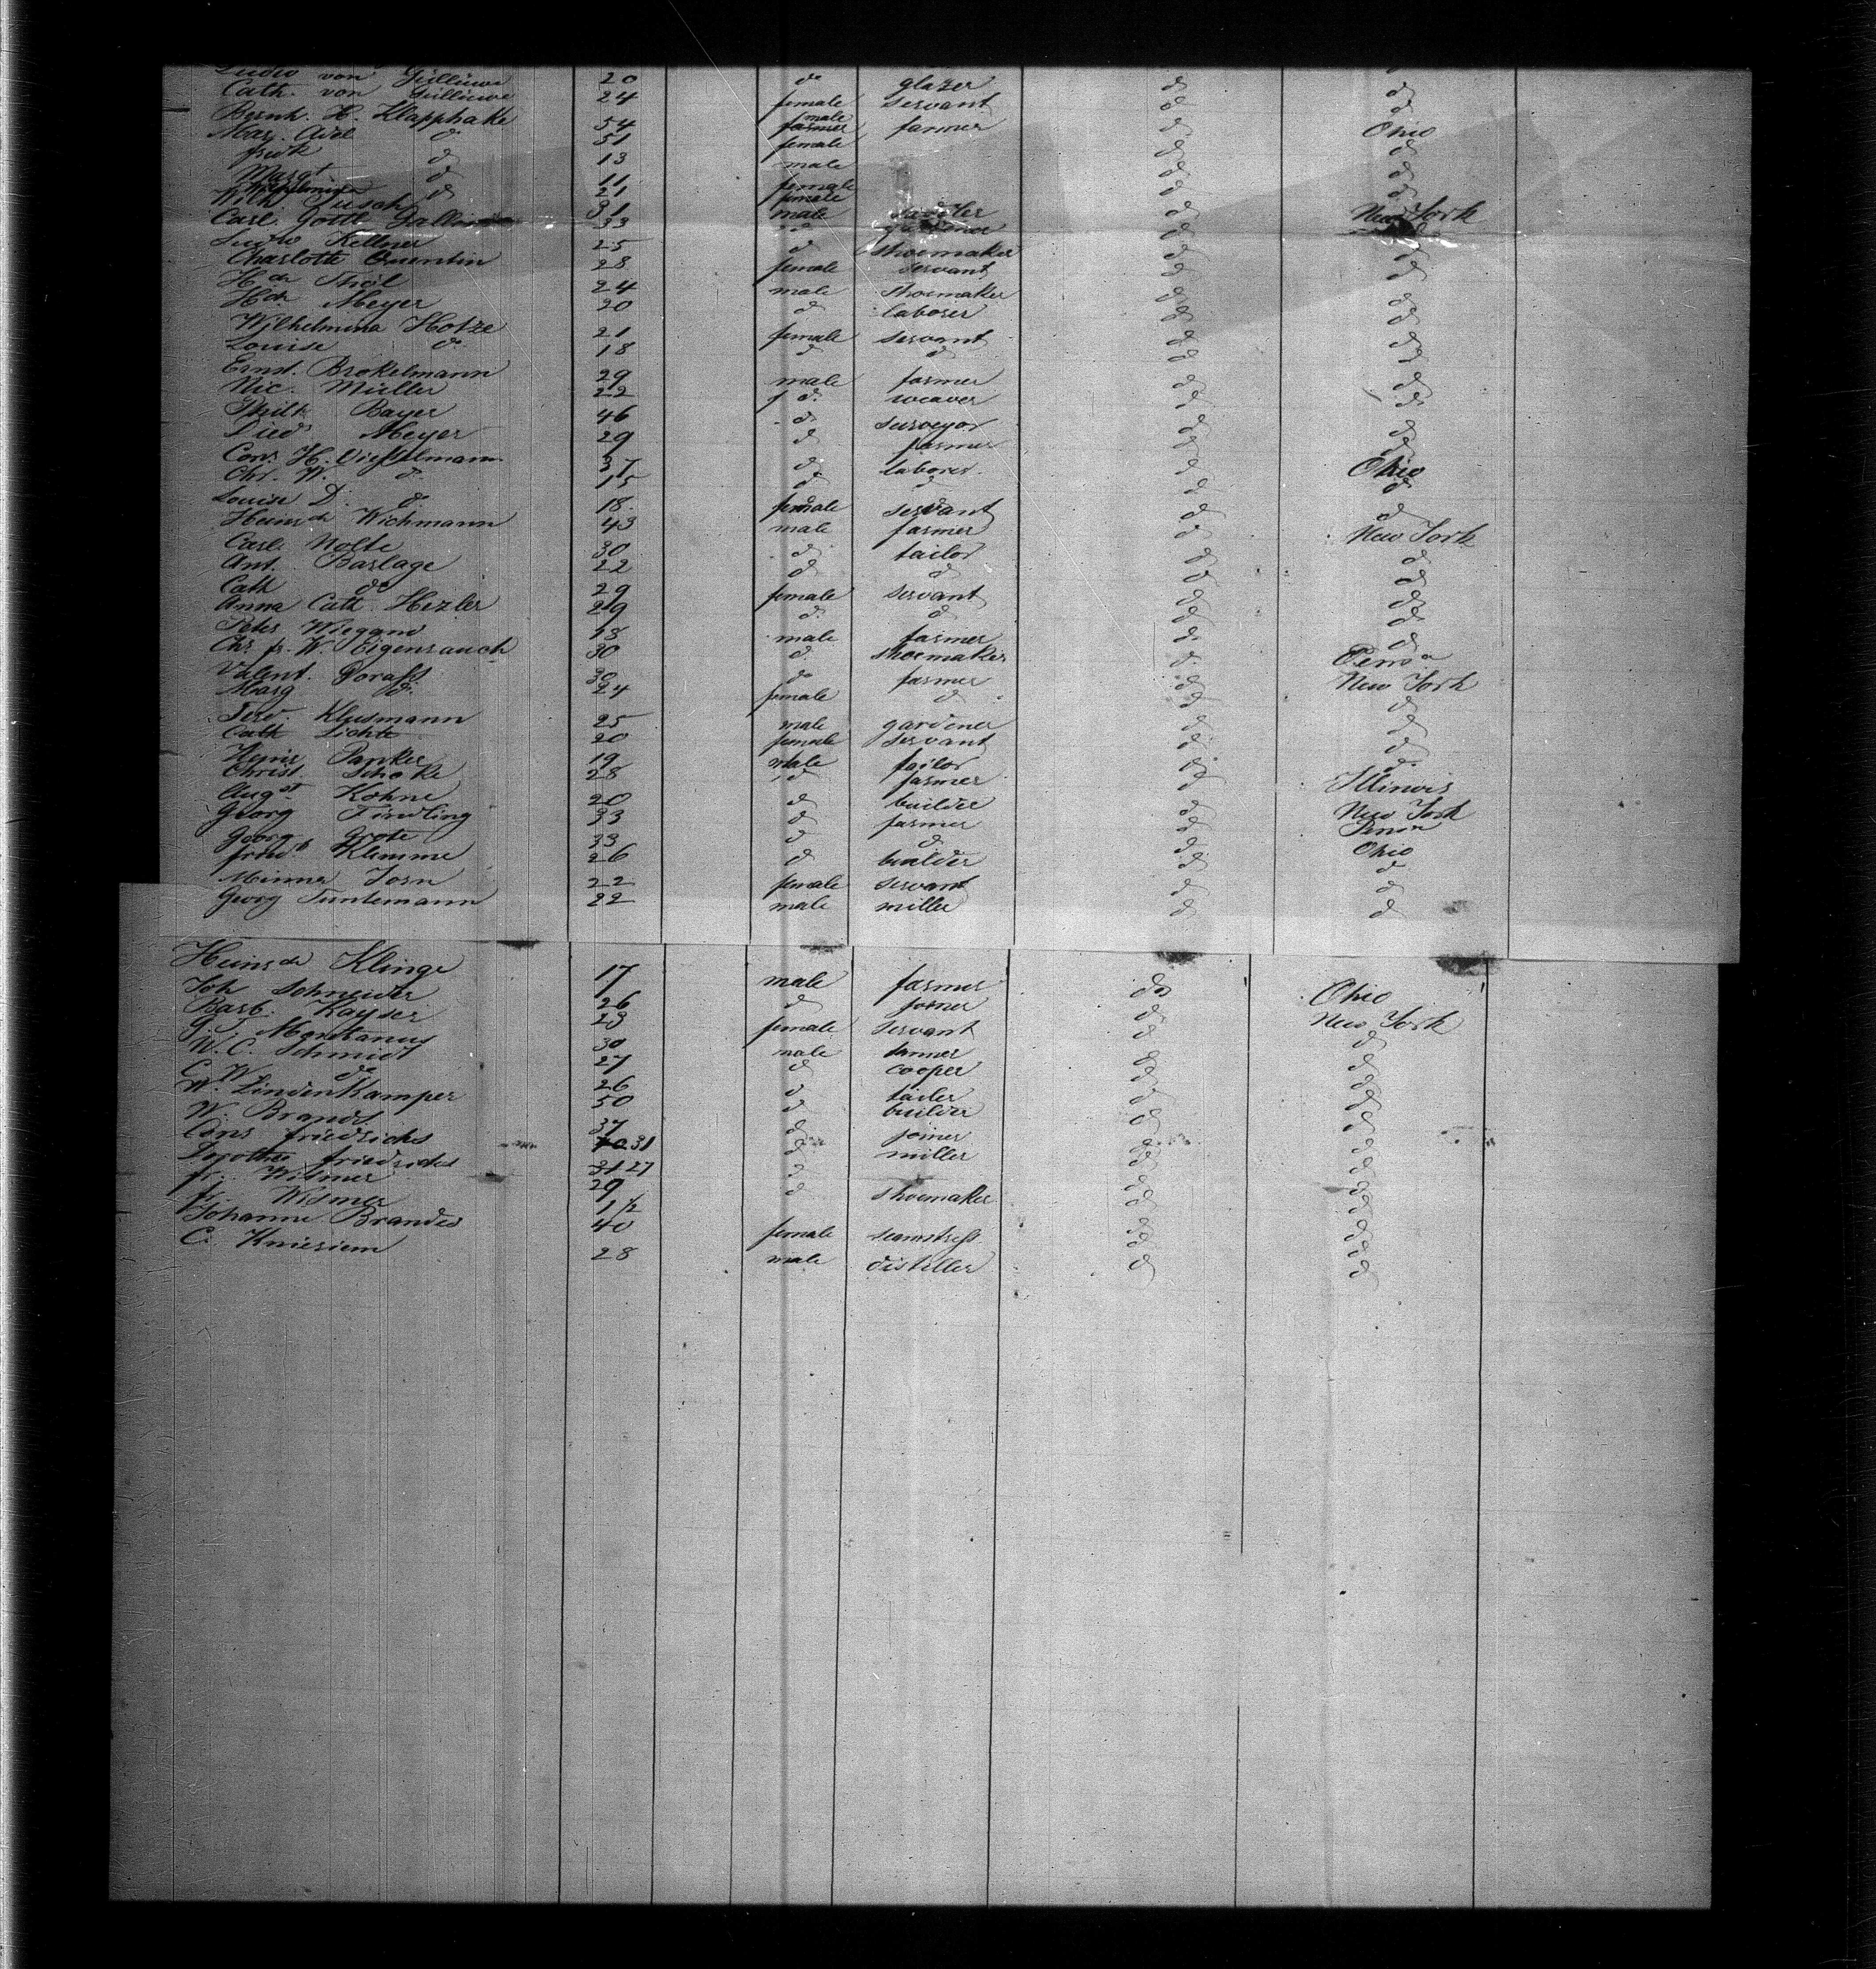 Ludw von Gülluwe 20 do glazer do do
Cath. von Gülluwe 24 female servant do do
Bernh. H. Klapphake 54 male farmer farmer do Ohio
Mar. Adel do 51 female do do
fredk do 13 male do do
Margt do 11 female do do
Wilhelmina do 21 female do do
Wilh Tusch 31 male do New York
Carl Gottl 33 do do
Ludw Kellner 25 do shoemaker do do
Charlotte Quentin 28 female servant do do
Hch Thöl 24 male shoemaker do do
Hch Meyer 20 do laborer do do
Wilhelmina Hotze 21 female servant do do
Louise do 18 do do do do
Ernst. Brokelmann 29 male farmer do do
Nic. Müller 22 do weaver do do
Philh Bayer 46 do surveyor do do
Died. Meyer 29 do farmer do do
Conr. H. 37 do laborer do Ohio
Chr. W. do 15 do do do do
Louise D. do 18 female servant do do
Heinrch Wichmann 43 male farmer do New York
Carl Nolte 30 do tailor do do
Ant. Barlage 22 do do do do
Cath do 29 female servant do do
Anna Cath. Hezler 29 do do do do
Peter Wiegand 18 male farmer do do
Chr. fr. W. Eigenrauch 30 do shoemaker do Penna
Valent. 30 do farmer do New York
Marg do 24 female do do do
Ferd. Klusmann 25 male gardener do do
Cath Lichte 20 female servant do do
Heinr Panker 19 male tailor do do
Christ. Schake 28 do farmer do Illinois
Augst Kohne 20 do builder do New York
Georg Findling 33 do farmer do Penna
Georg Grote 33 do do do Ohio
friedr Klemme 26 do builder do do
Minna Jorn 22 female servant do do
Georg Tuntemann 22 male miller do do
Heinrch Klinge 17 male farmer do Ohio
Joh Schneider 26 do joiner do New York
Barb. Kayser 23 female servant do do
G. J. Montanus 30 male tanner do do
W. C. Schmidt 27 do cooper do do
C. W. do 26 do tailer do do
W. Lindenkamper 50 do builder do do
W. Brandt 37 do joiner do do
Cons friedrichs 31 do miller do do
Dorothee friedrichs 27 do do do
fr. Widmer 29 do shoemaker do do
fr. Widmer 1 1/2 do do
Johanne Brandes 40 female seamstress do do
C. Kniesiem 28 male distiller do do